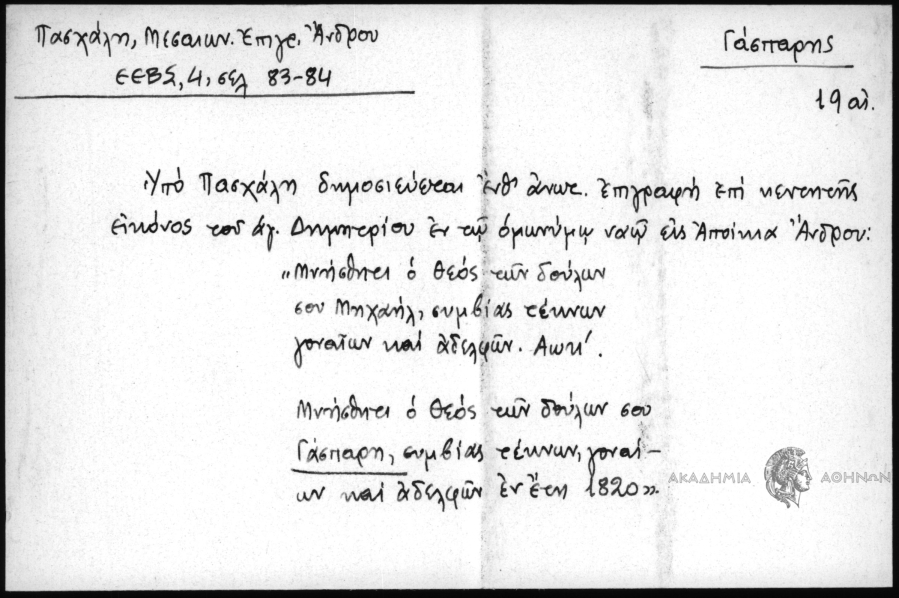 Πασχάλη, Μεσαιων. Ἐπιγρ. Ἄνδρου
ΕΕΒΣ, 4, σελ 83-84
Γάσπαρης
19 αἰ.
Ὑπό Πασχάλη δημοσιεύεται ἔνθ' ἀνωτ. ἐπιγραφή ἐπί κεντητῆς
εἰκόνος τοῦ ἁγ. Δημητρίου ἐν τῷ ὁμωνύμῳ ναῷ εἰς Ἀποίκια Ἄνδρου:
"Μνήσθητι ὁ Θεός τῶν δούλων
σου Μηχαήλ, συμβίας τέκνων
γοναίων καί ἀδελφῶν. Αωκ'.
Μνήσθητι ὁ Θεός τῶν δούλων σου
Γάσπαρη, συμβίας τέκνων, γοναί-
ων καί ἀδελφῶν ἐν ἔτη 1820».
ΑΚΑΔΗΜΙΑ ΑΘΗΝΩΝ